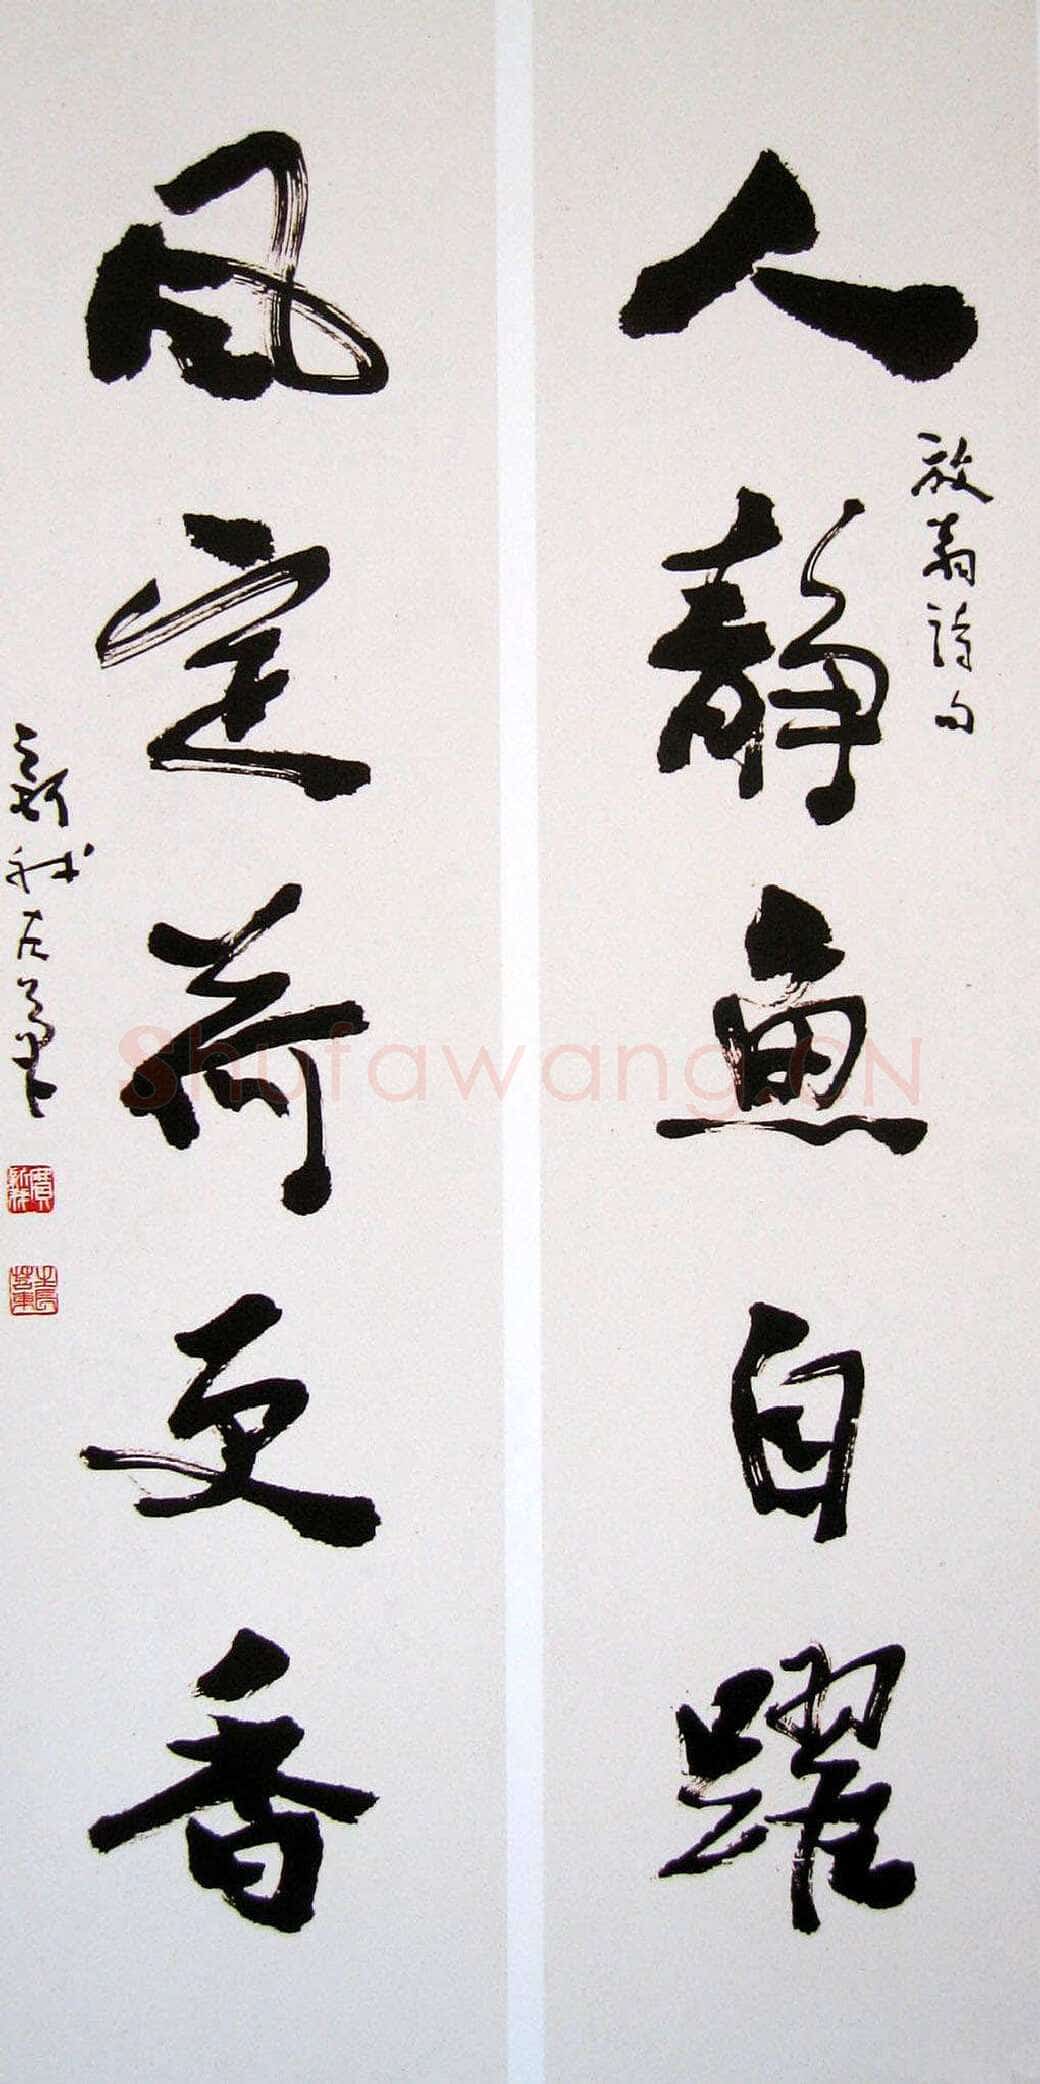 人静魚自躍
放翁詩句
风定荷更香
新我左筆
Shufawang.CN